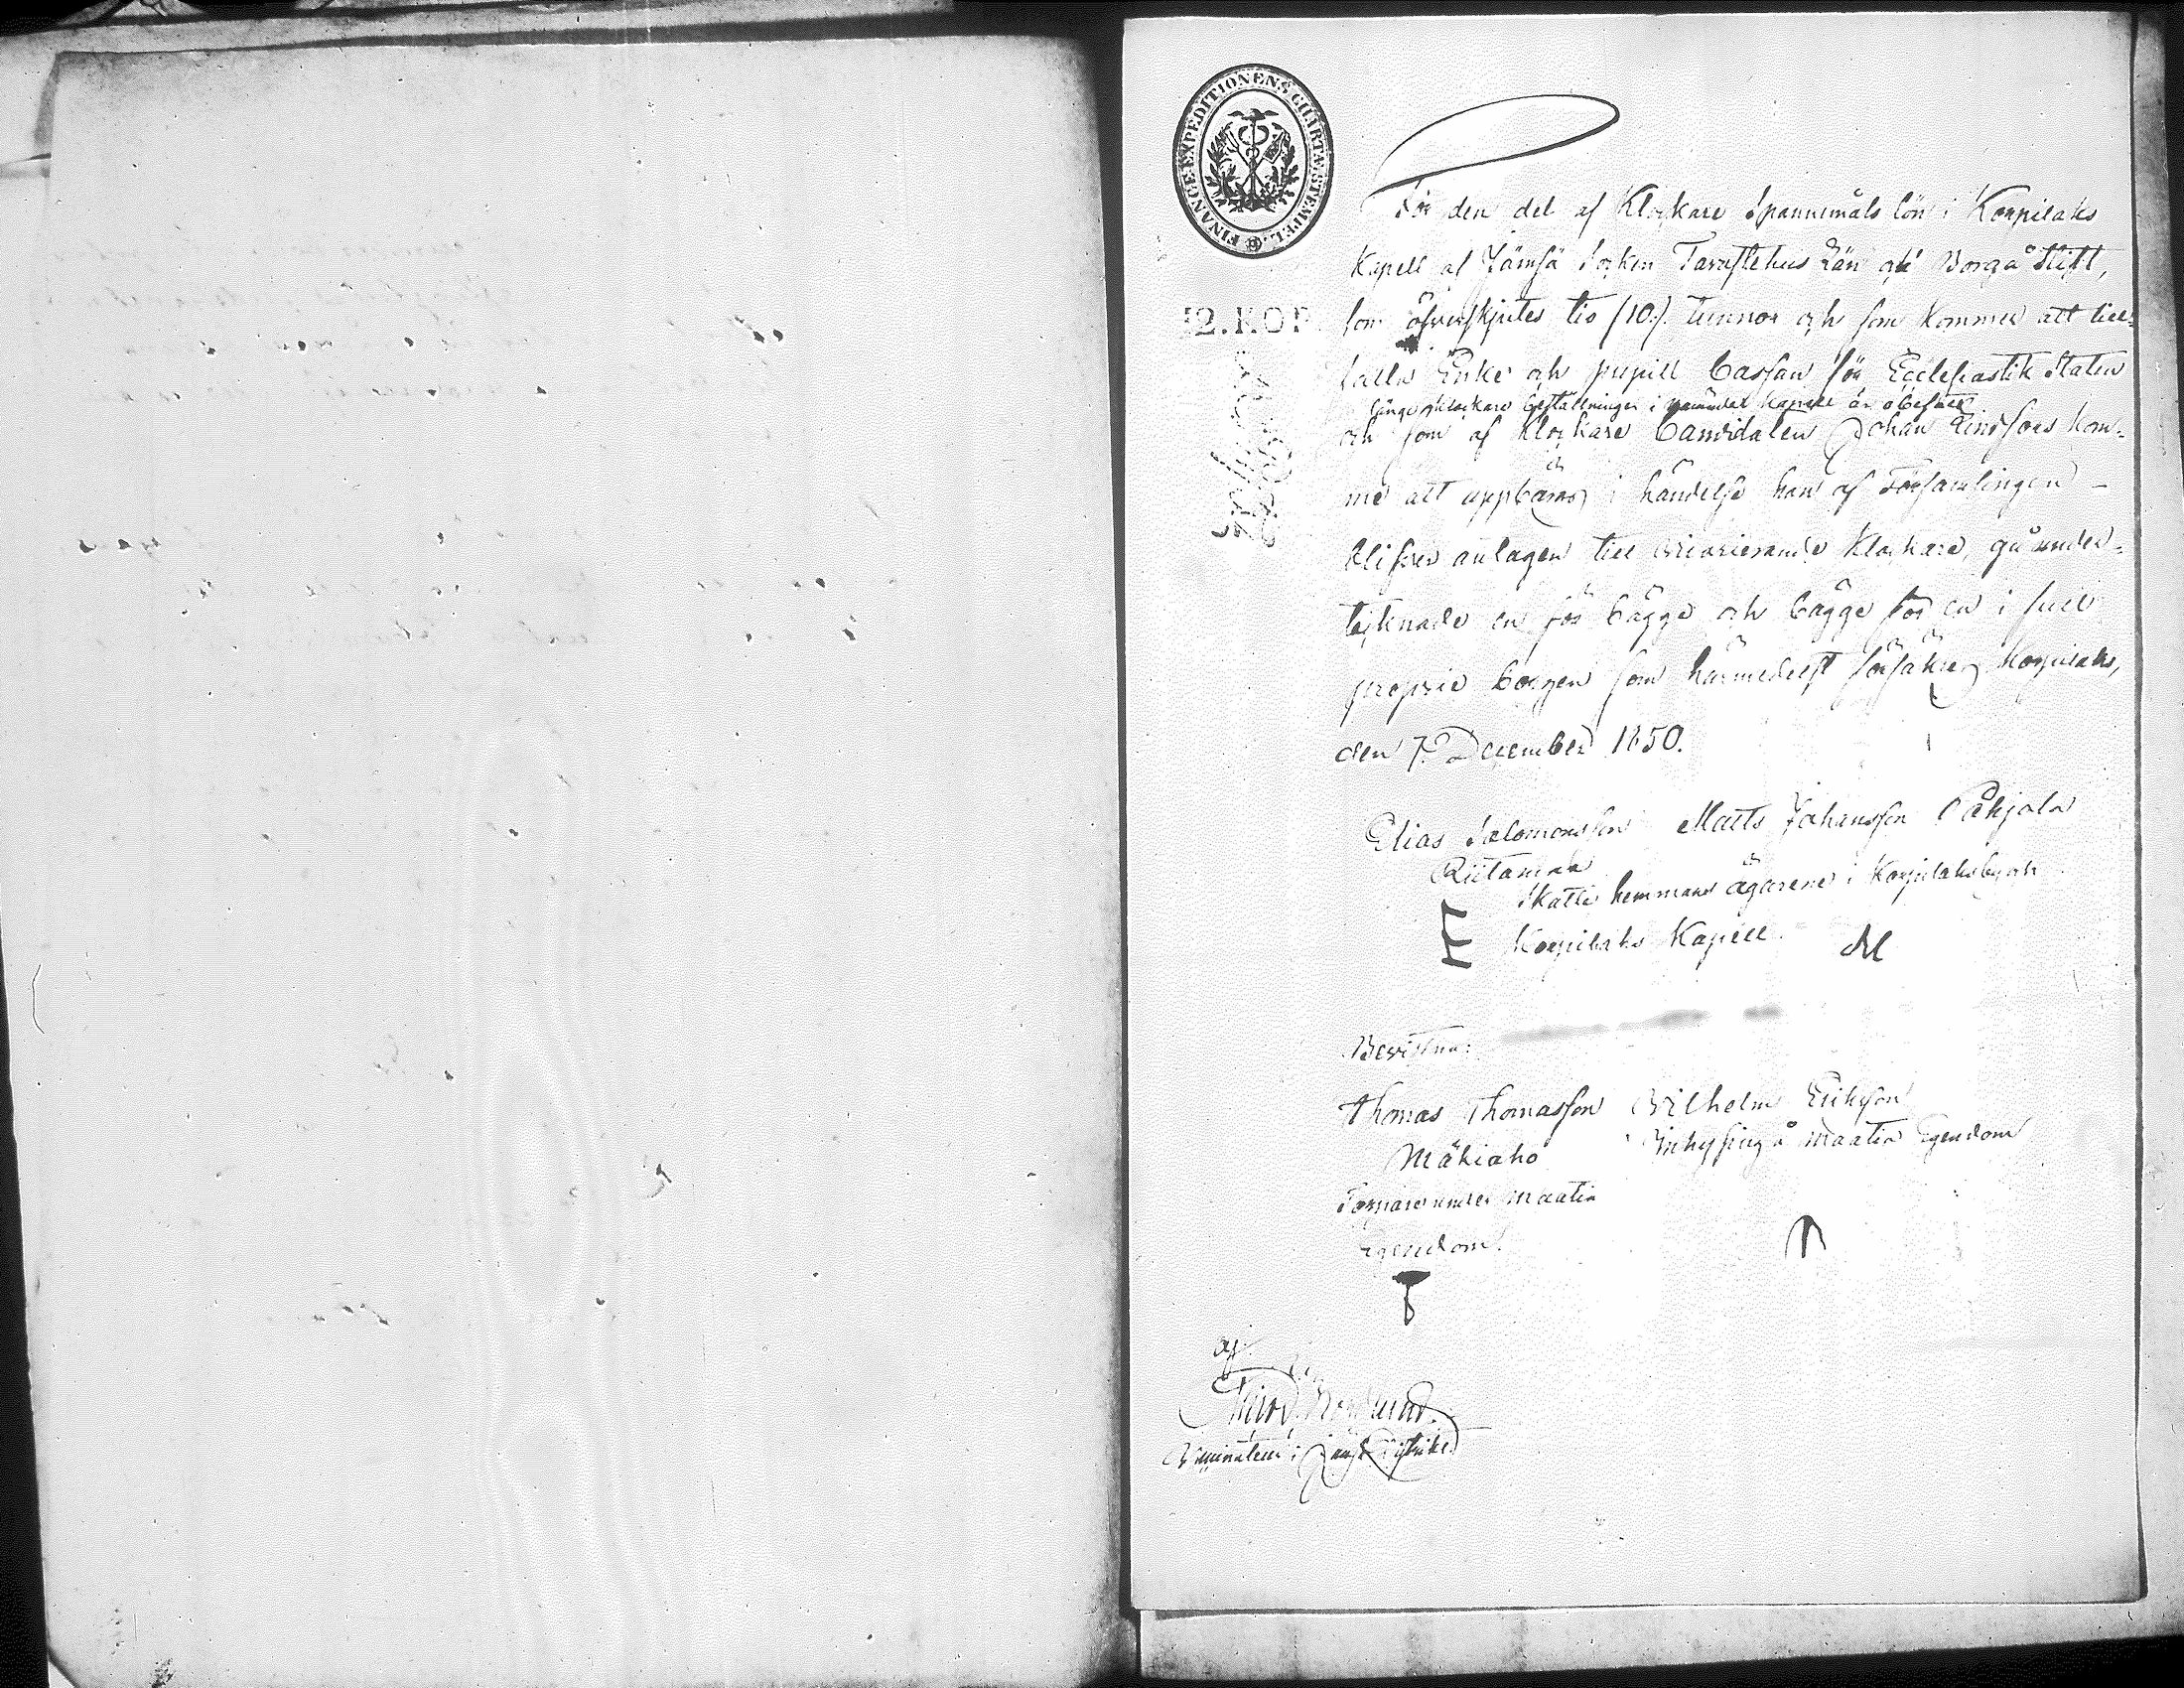 FINANCE-EXPEDITIONENS CHARTÆ STEMPEL.
12. KOP
För den del af Klockare Spannemåls lön i Korpilaks
Kapell af Jämsä Socken Tavastehus Län och Borgå Stift,
som öfverskjutes tio (10.) tunnor och som kommer att till-
falla Enke och pupill Cassan för Ecclesiastik Staten
länge Klockare beställningen i nämnde Kapell är obesatt
och som af Klockare Candidaten Johan Lindfors kom-
me att uppbäras i händelse han af Församlingen
blifver antagen till vicarierande Klockare, gå under-
tecknade en för bägge och bägge för en i full
proprie borgen som härmedelst försäkras Korpilaks,
den 7 December 1850.
Elias Salomonsson Matts Johansson Påhjola
Riitamaa
Skatte hemmans ägarene i Korpilaks by och
Korpilaks Kapell. M
Bevittna:
Thomas Thomasson Wilhelm Eriksson
Mäkiaho Inhysing å Maatia Egendom
Torpare under Maatia
Egendom.
af